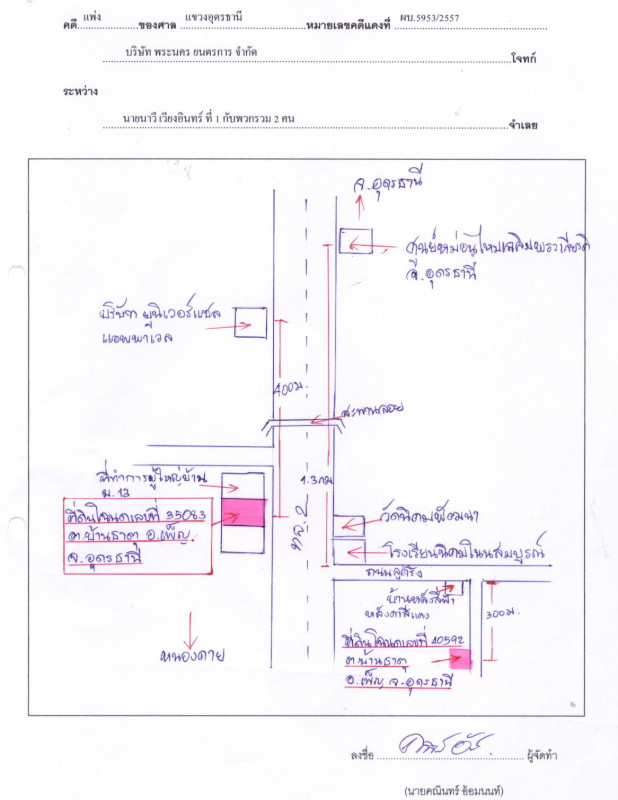 คดี แพ่ง ของศาล แขวงอุดรธานี หมายเลขคดีแดงที่ ผบ.5953/2557
บริษัท พระนคร ยนตรการ จำกัด โจทก์
ระหว่าง
นายนาวี เวียงอินทร์ ที่ 1 กับพวกรวม 2 คน จำเลย
จ.อุดรธานี
ศูนย์หม่อนไหมเฉลิมพระเกียรติ
จ.อุดรธานี
บริษัท ยูนิเวอร์แซล
แอพพาเรล
400ม.
สะพานลอย
ที่ทำการผู้ใหญ่บ้าน
ม.13
1.3กม
ที่ดินโฉนดเลขที่ 35083
ต.บ้านธาตุ อ.เพ็ญ
จ.อุดรธานี
ทล.2
วัดนิคมพัฒนา
โรงเรียนนิคมโนนสมบูรณ์
ถนนลูกรัง
บ้านหลังสีฟ้า
หลังคาสีแดง
300ม.
ที่ดินโฉนดเลขที่ 40592
ต.บ้านธาตุ
อ.เพ็ญ จ.อุดรธานี
หนองคาย
ลงชื่อ ผู้จัดทำ
(นายคณินทร์ อ้อมนนท์)